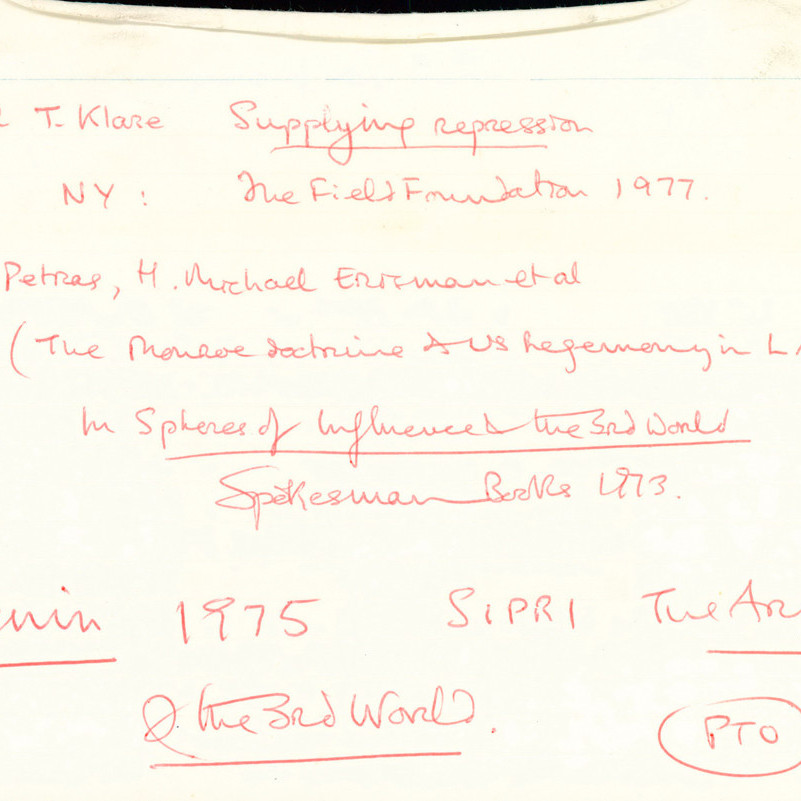 T. Klare Supplying repression
NY : The Field Foundation 1977.
Petras, H. Michael Erisman et al
(The Monroe doctrine & US hegemony in L A
In Spheres of Influence & the 3rd World
Spokesman Books 1973.
1975 SIPRI The Ar
& the 3rd World.
PTO